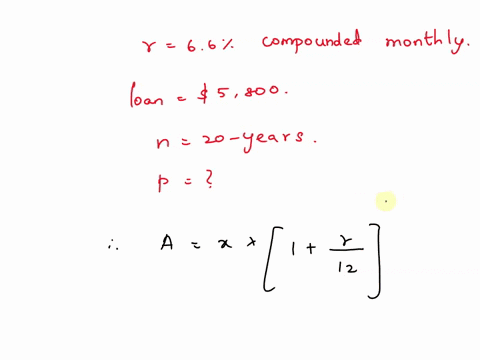 r = 6.6% compounded monthly.
loan = $5,800.
n = 20-years.
p = ?
∴ A = x × [1 + r/12]